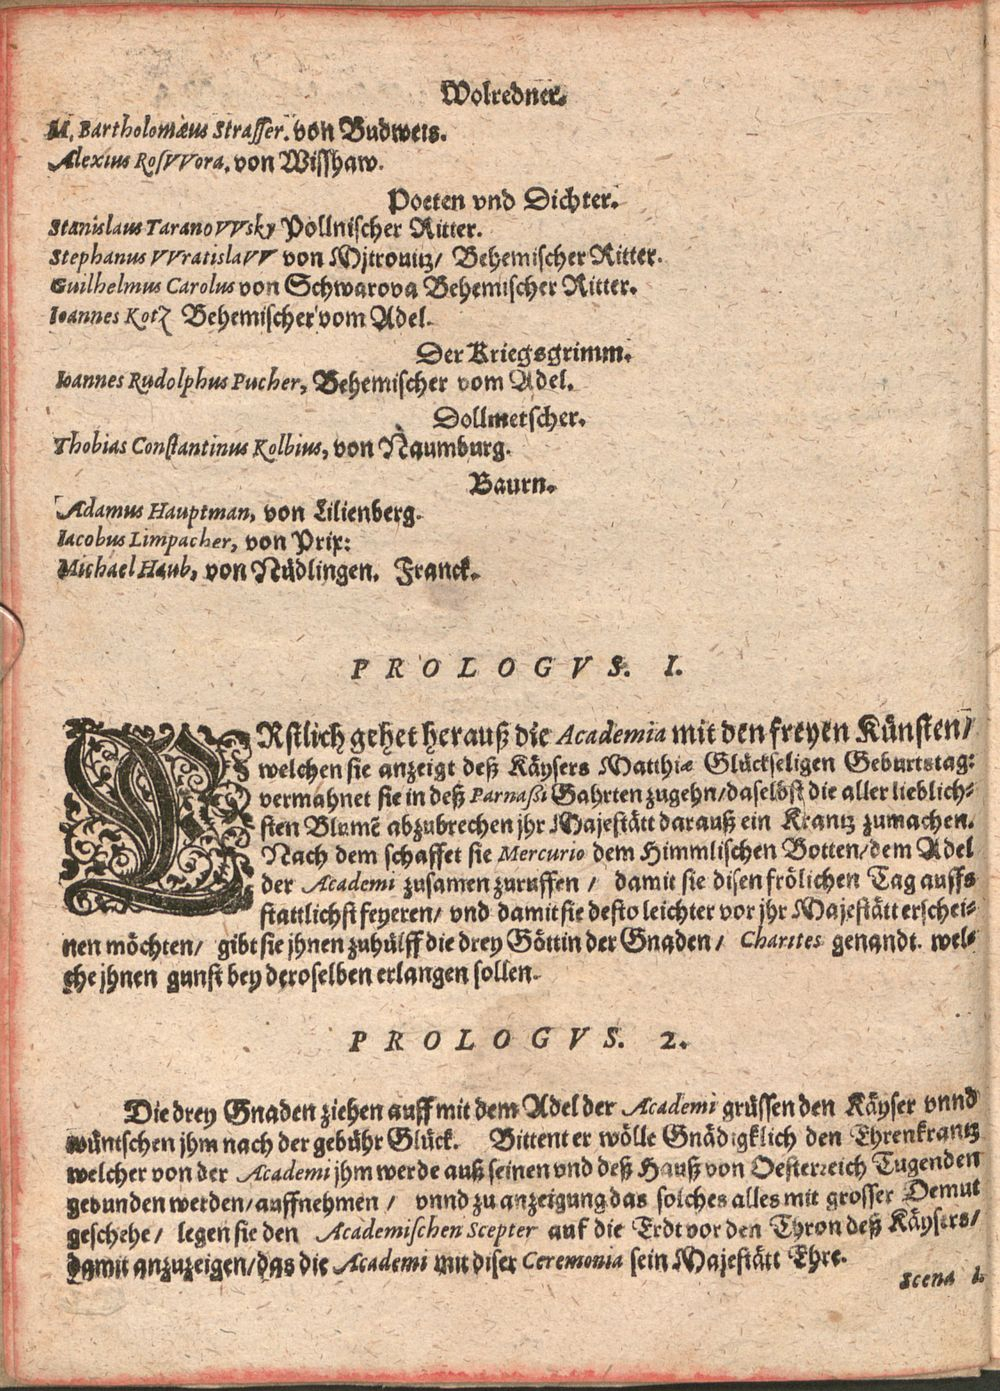 Wolredner.
M. Bartholomæus Strasser. von Budweis.
Alexius RosVVora. von Wisshaw.
Poeten vnd Dichter.
Stanislaus TaranoVVsky Pöllnischer Ritter.
Stephanus VVratislaVV von Mjtrouitz/ Behemischer Ritter.
Guilhelmus Carolus von Schwarova Behemischer Ritter.
Ioannes Kotz Behemischer vom Adel.
Der Kriegsgrimm.
Ioannes Rudolphus Pucher, Behemischer vom Adel.
Dollmetscher.
Thobias Constantinus Kolbius, von Naumburg.
Baurn.
Adamus Hauptman, von Lilienberg.
Iacobus Limpacher, von Prix:
Michael Haub, von Nüdlingen. Franck.
PROLOGVS. I.
ERstlich gehet herauß die Academia mit den freyen Künsten/
welchen sie anzeigt deß Käysers Matthiæ Glückseligen Geburtstag:
vermahnet sie in deß Parnaßi Gahrten zugehn/daselbst die aller lieblich-
sten Blumē abzubrechen jhr Majestätt darauß ein Krantz zumachen.
Nach dem schaffet sie Mercurio dem Himmlischen Botten/dem Adel
der Academi zusamen zuruffen / damit sie disen frölichen Tag auffs
stattlichst feyeren/ vnd damit sie desto leichter vor jhr Majestätt erschei-
nen möchten/ gibt sie jhnen zuhülff die drey Göttin der Gnaden/ Charites genandt. wel-
che jhnen gunst bey deroselben erlangen sollen.
PROLOGVS. 2.
Die drey Gnaden ziehen auff mit dem Adel der Academi grüssen den Käyser vnnd
wüntschen jhm nach der gebühr Glück. Bittent er wölle Gnädigklich den Ehrenkrantz
welcher von der Academi jhm werde auß seinen vnd deß Hauß von Oesterreich Tugenden
gebunden werden/auffnehmen / vnnd zu anzeigung das solches alles mit grosser Demut
geschehe/ legen sie den Academischen Scepter auf die Erdt vor den Thron deß Käysers/
damit anzuzeigen/das die Academi mit diser Ceremonia sein Majestätt Ehre.
Scena I.